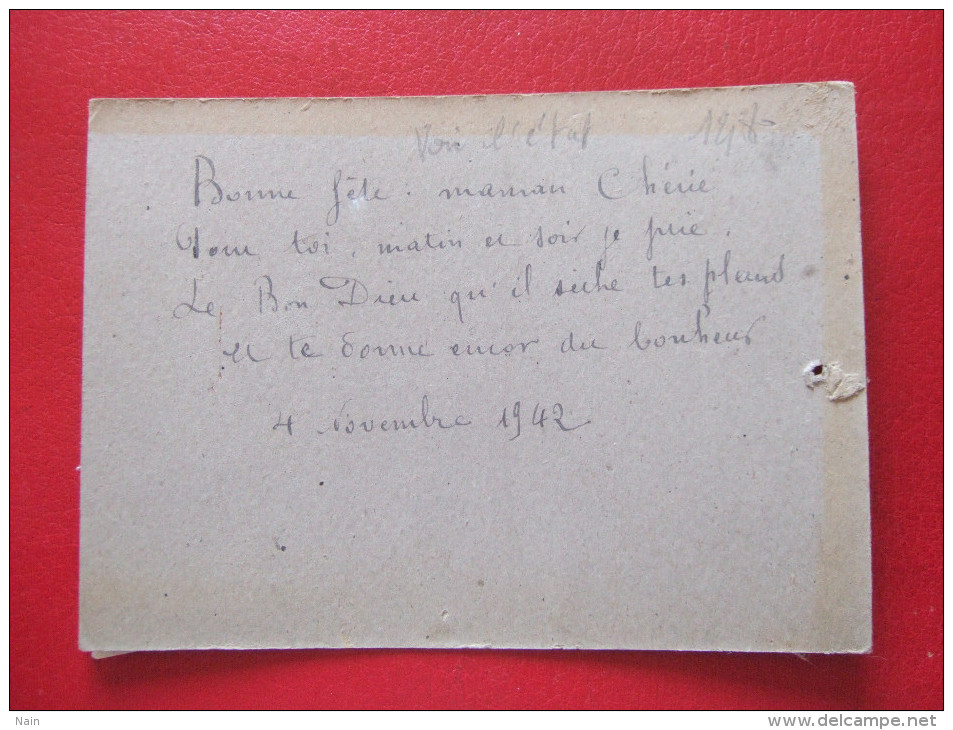 Voir l'état
Bonne fête : maman Chérie
Pour toi, matin et soir je prie,
Le Bon Dieu qu'il sèche tes pleurs
et te donne encor du bonheur
4 Novembre 1942
Nain
www.delcampe.net